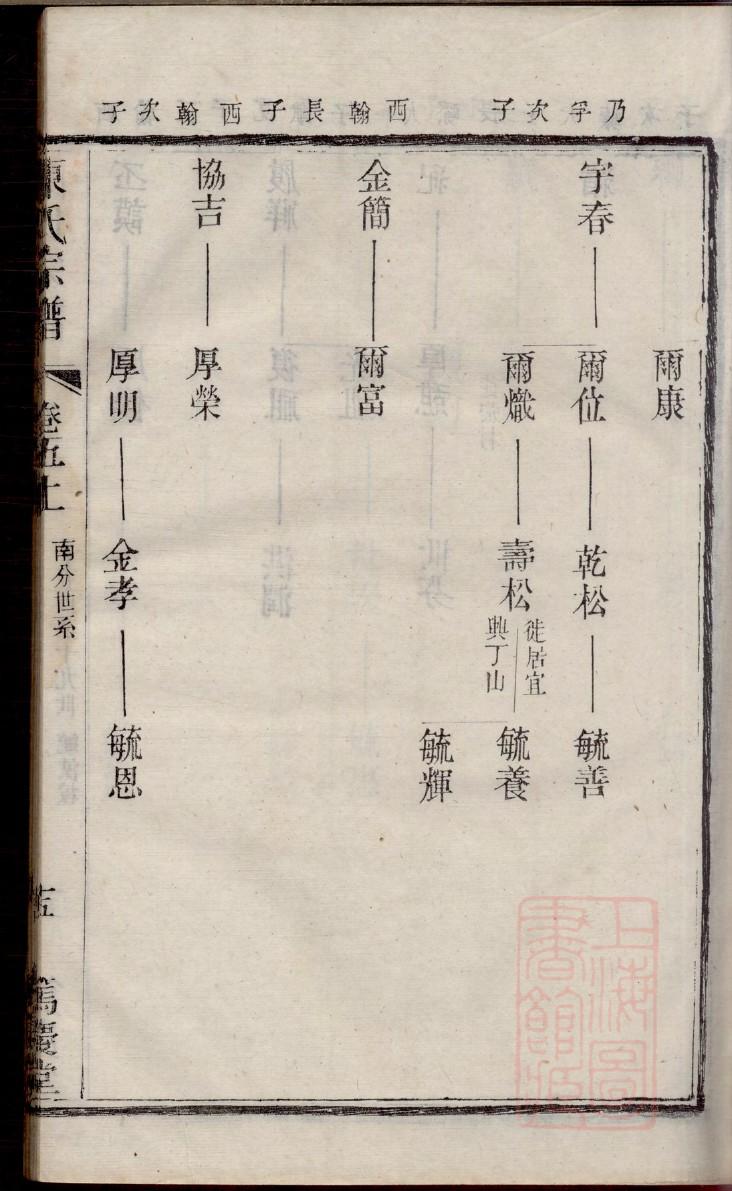 乃孚次子
西翰長子
西翰次子
爾康
宇春
爾位
乾松
毓善
爾熾
壽松
徙居宜
興丁山
毓養
毓輝
金簡
爾富
協吉
厚榮
厚明
金孝
毓恩
陳氏宗譜
卷五上
南分世系
十五
篤慶堂
上海圖
書館藏